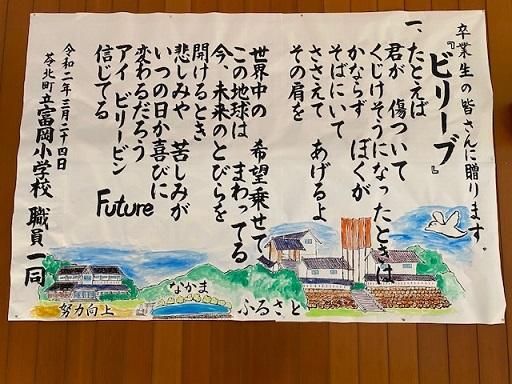 卒業生の皆さんに贈ります。
『ビリーブ』
一、たとえば
君が 傷ついて
くじけそうになったときは
かならず ぼくが
そばにいて あげるよ
ささえて
その肩を
世界中の 希望乗せて
この地球は まわってる
今、未来のとびらを
開けるとき
悲しみや 苦しみが
いつの日か喜びに
変わるだろう
アイ ビリーブ イン
信じてる
Future
令和二年三月二十四日
苓北町立富岡小学校 職員一同
努力向上
なかま
ふるさと